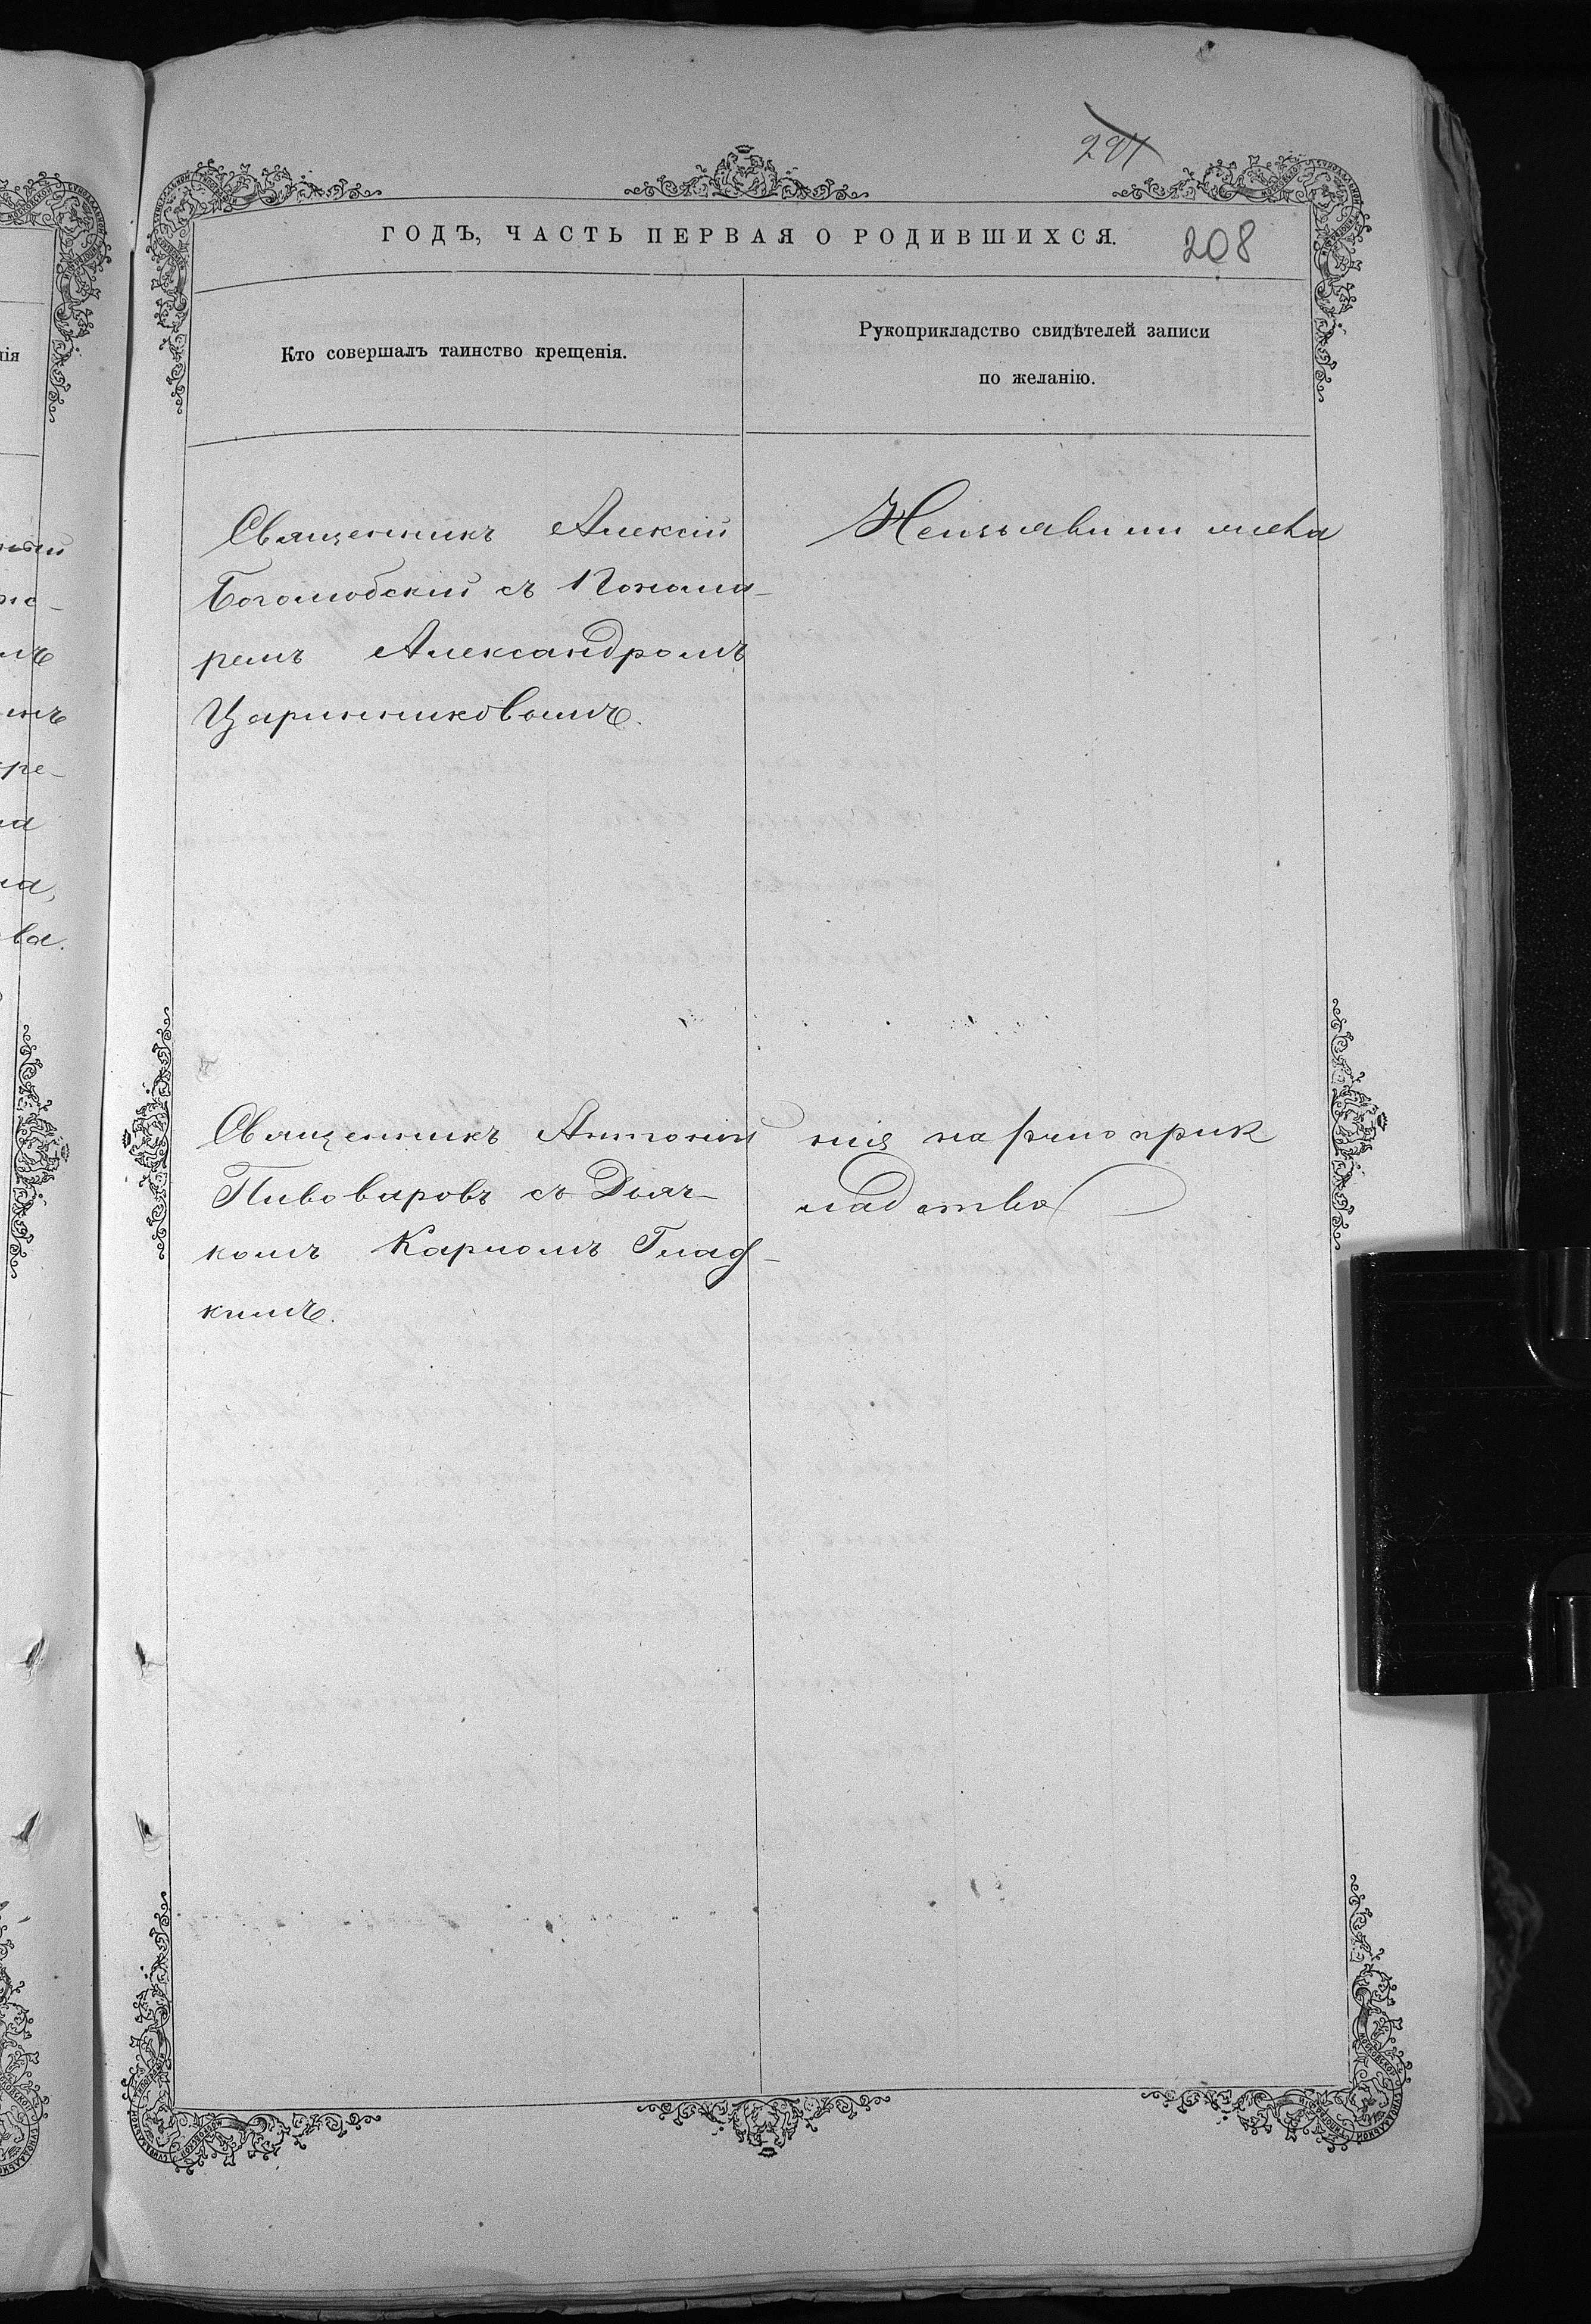 291
ГОДЪ, ЧАСТЬ ПЕРВАЯ О РОДИВШИХСЯ.
208
Кто совершалъ таинство крещенія.
Рукоприкладство свидѣтелей записи
по желанію.
Священникъ Алексій
Боголюбскій съ Понома-
ремъ Александромъ
Царинниковымъ.
Неизъявили жела
Священникъ Антоній
Пивоваровъ съ Дьяч-
комъ Карпомъ Глад-
кимъ.
нія на рукоприк
ладство
нія
ва.